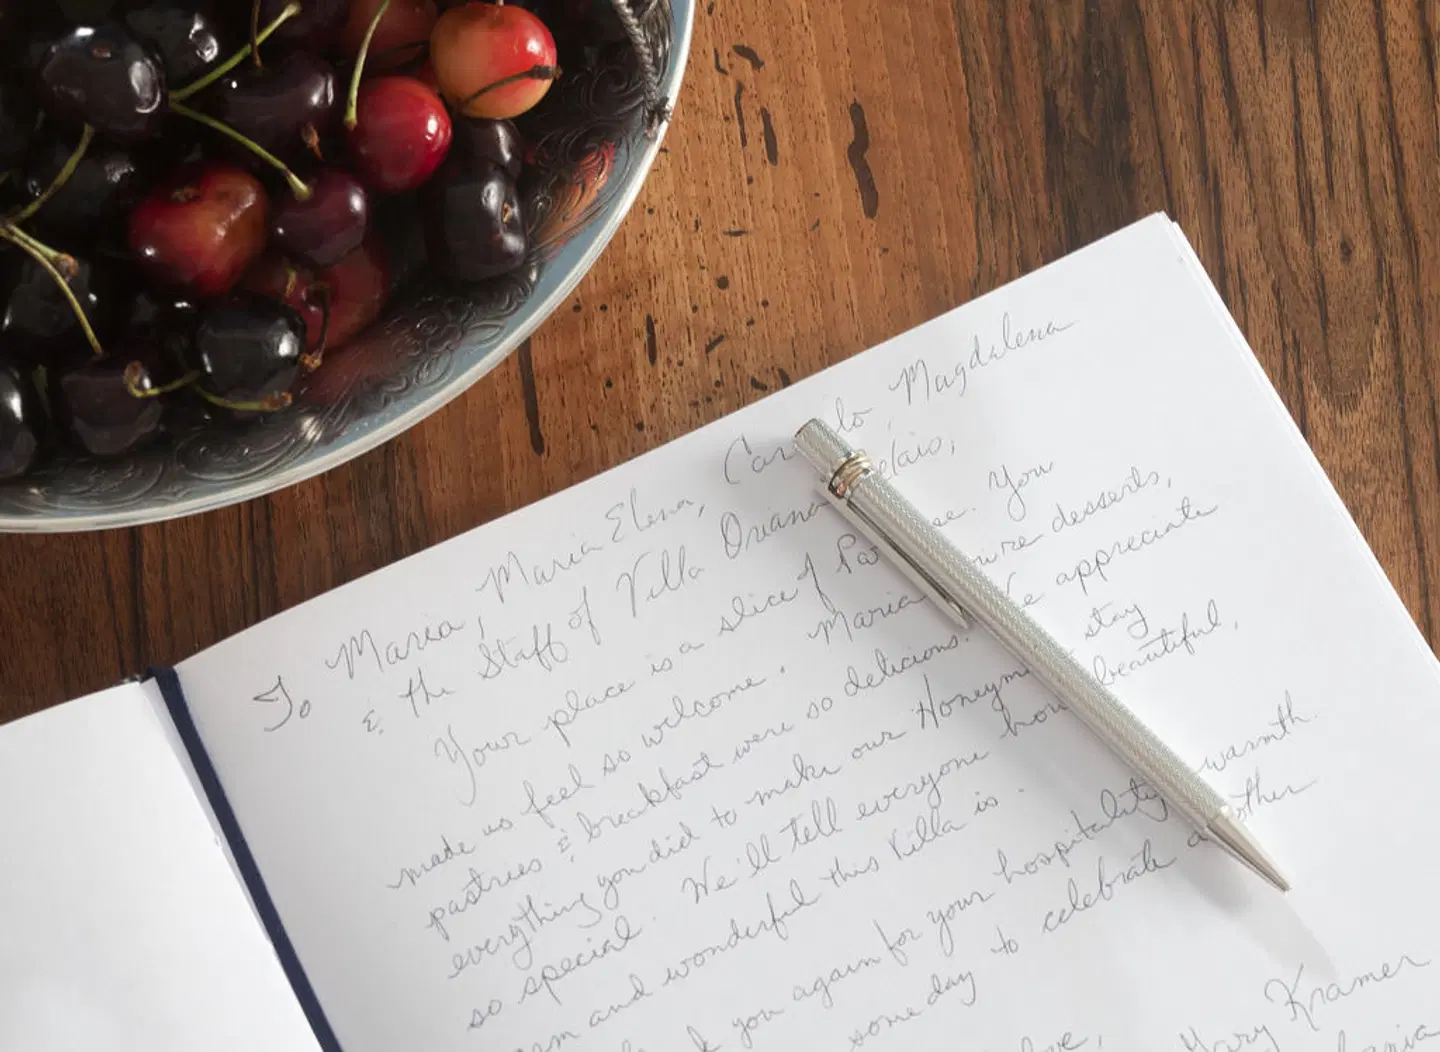 To Maria, Maria Elena, Carlo, Magdalena
& the Staff of Villa Oriana
Your place is a slice of Paradise. You
made us feel so welcome. Maria desserts,
pastries & breakfast were so delicious. We appreciate
everything you did to make our Honeymoon stay
so special. We'll tell everyone how beautiful,
and wonderful this Villa is.
you again for your hospitality warmth.
some day to celebrate another
Love,
Mary Kramer